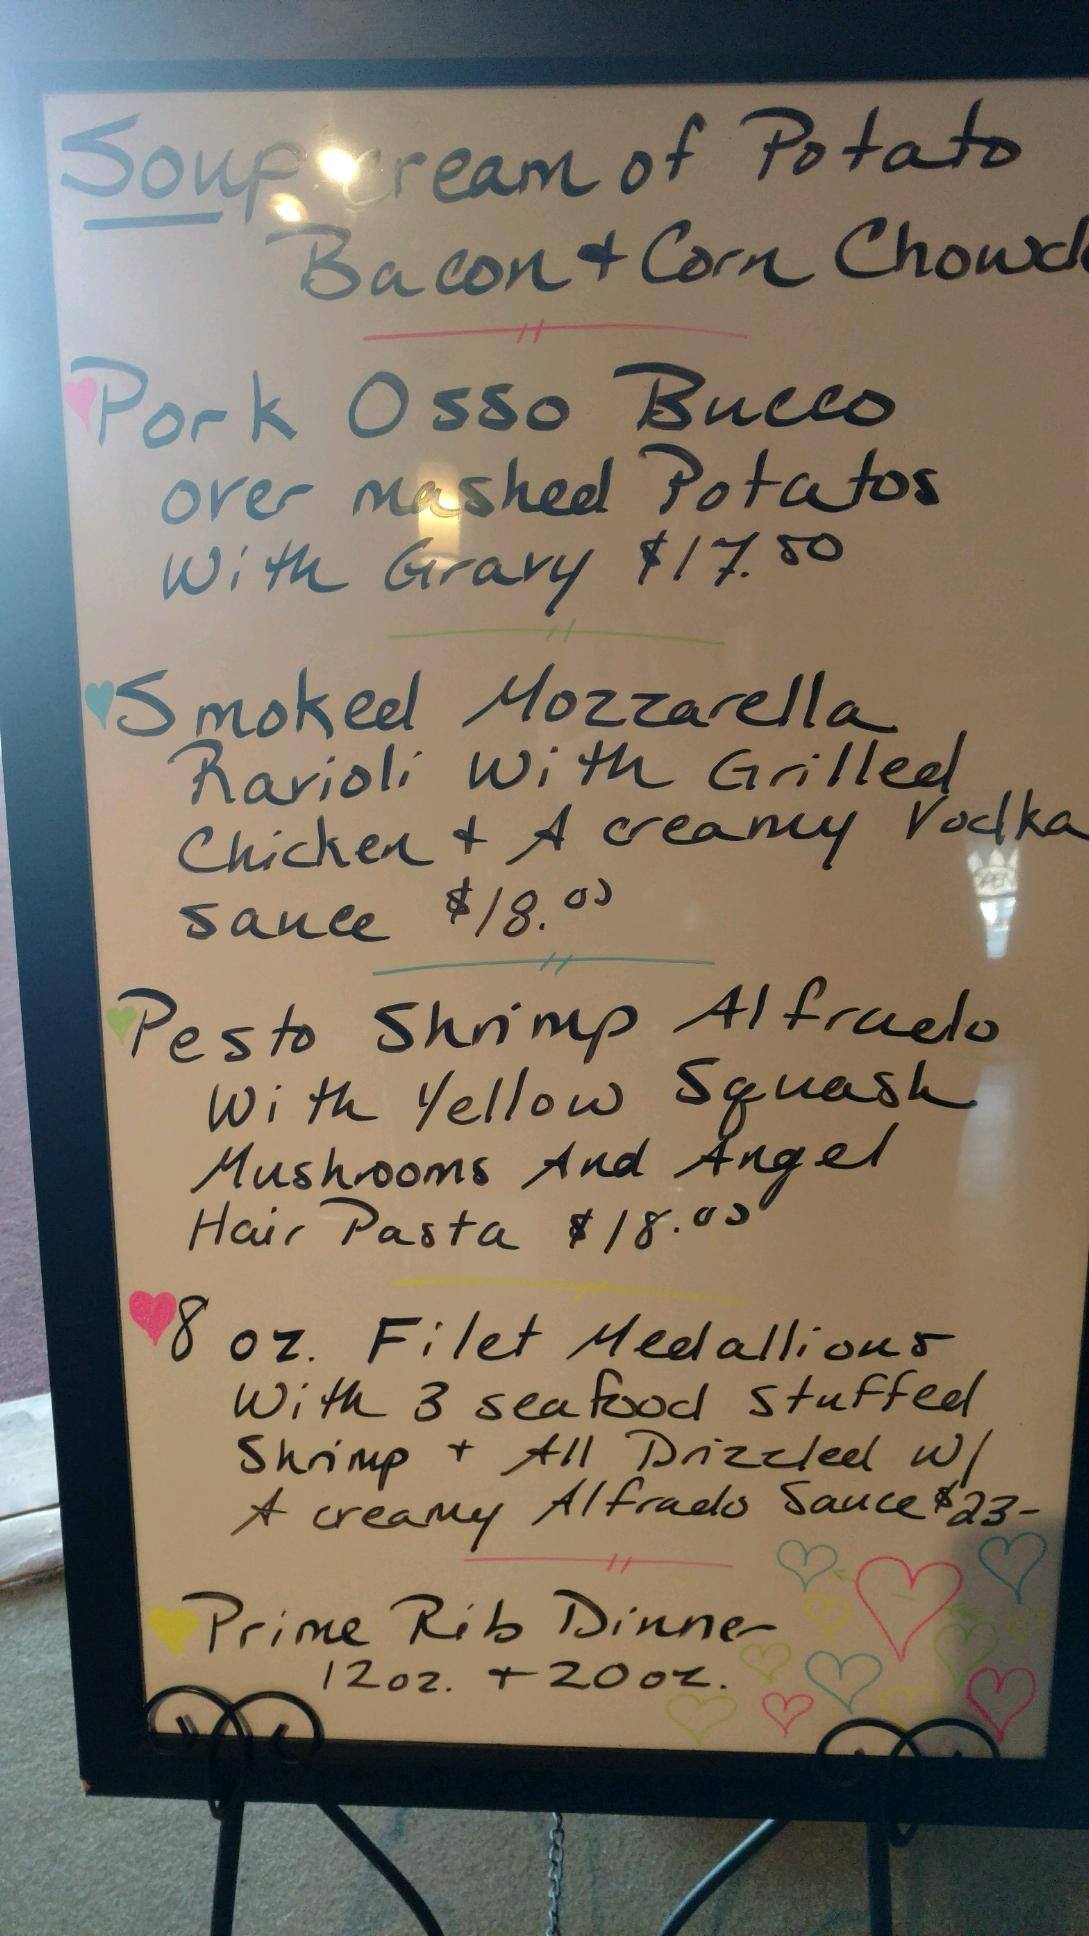 Soup cream of Potato
Bacon + Corn Chowd
Pork Osso Bucco
over mashed Potatos
With Gravy $17.50
Smoked Mozzarella
Ravioli With Grilled
Chicken + A creamy Vodka
sauce $18.00
Pesto Shrimp Alfrado
With Yellow Squash
Mushrooms And Angel
Hair Pasta $18.00
8 oz. Filet Medallions
With 3 seafood stuffed
Shrimp + All Drizzled w/
A creamy Alfrado Sauce $23-
Prime Rib Dinner
12oz. + 20oz.